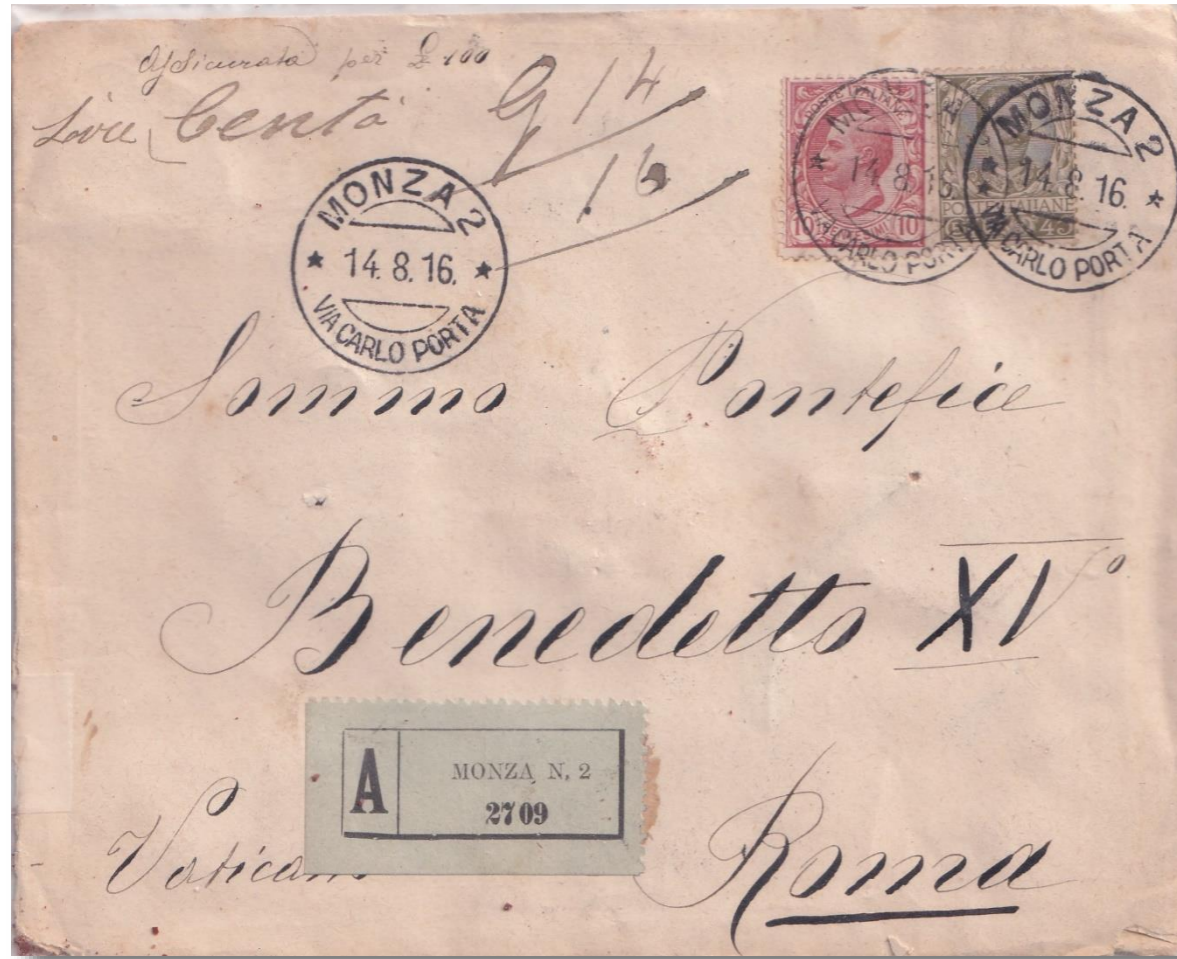 Assicurata per £ 100
Lire Centò
g 14
16
MONZA 2
14.8.16.
VIA CARLO PORTA
POSTE ITALIANE
10 10
14 8 16
VIA CARLO PORTA
POSTE ITALIANE
C. 45
MONZA 2
14.8.16.
VIA CARLO PORTA
Sommo Pontefice
Benedetto XV°
A
MONZA N. 2
2709
Vaticano Roma